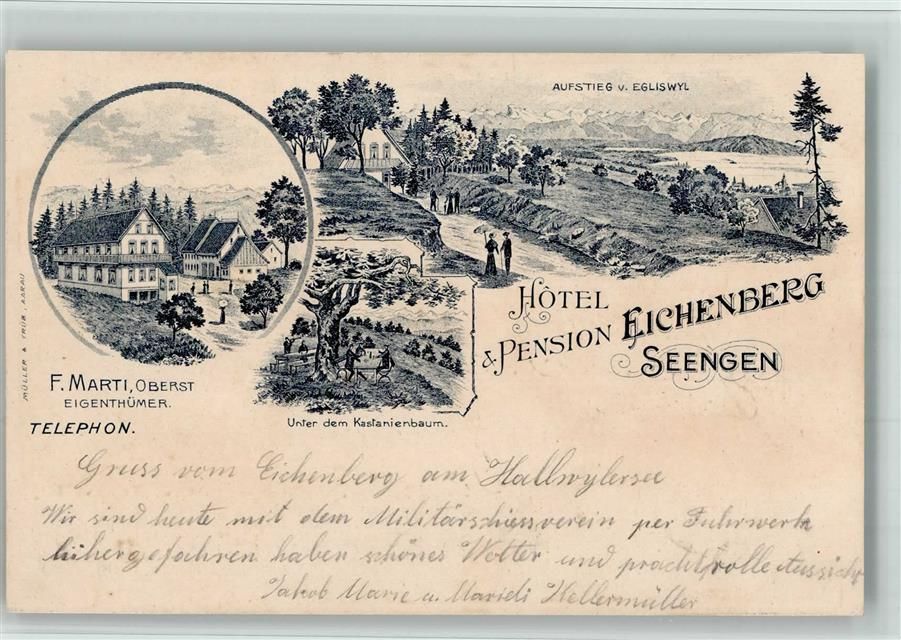 AUFSTIEG v. EGLISWYL
HÔTEL
& PENSION EICHENBERG
SEENGEN
MÜLLER & TRÜB, AARAU
F. MARTI, OBERST
EIGENTHÜMER.
TELEPHON.
Unter dem Kastanienbaum.
Gruss vom Eichenberg am Hallwylersee
Wir sind heute mit dem Militärschiessverein per Fuhrwerk
hiehergefahren haben schönes Wetter und prachtvolle Aussicht
Jakob Marie u. Marieli Kellermüller